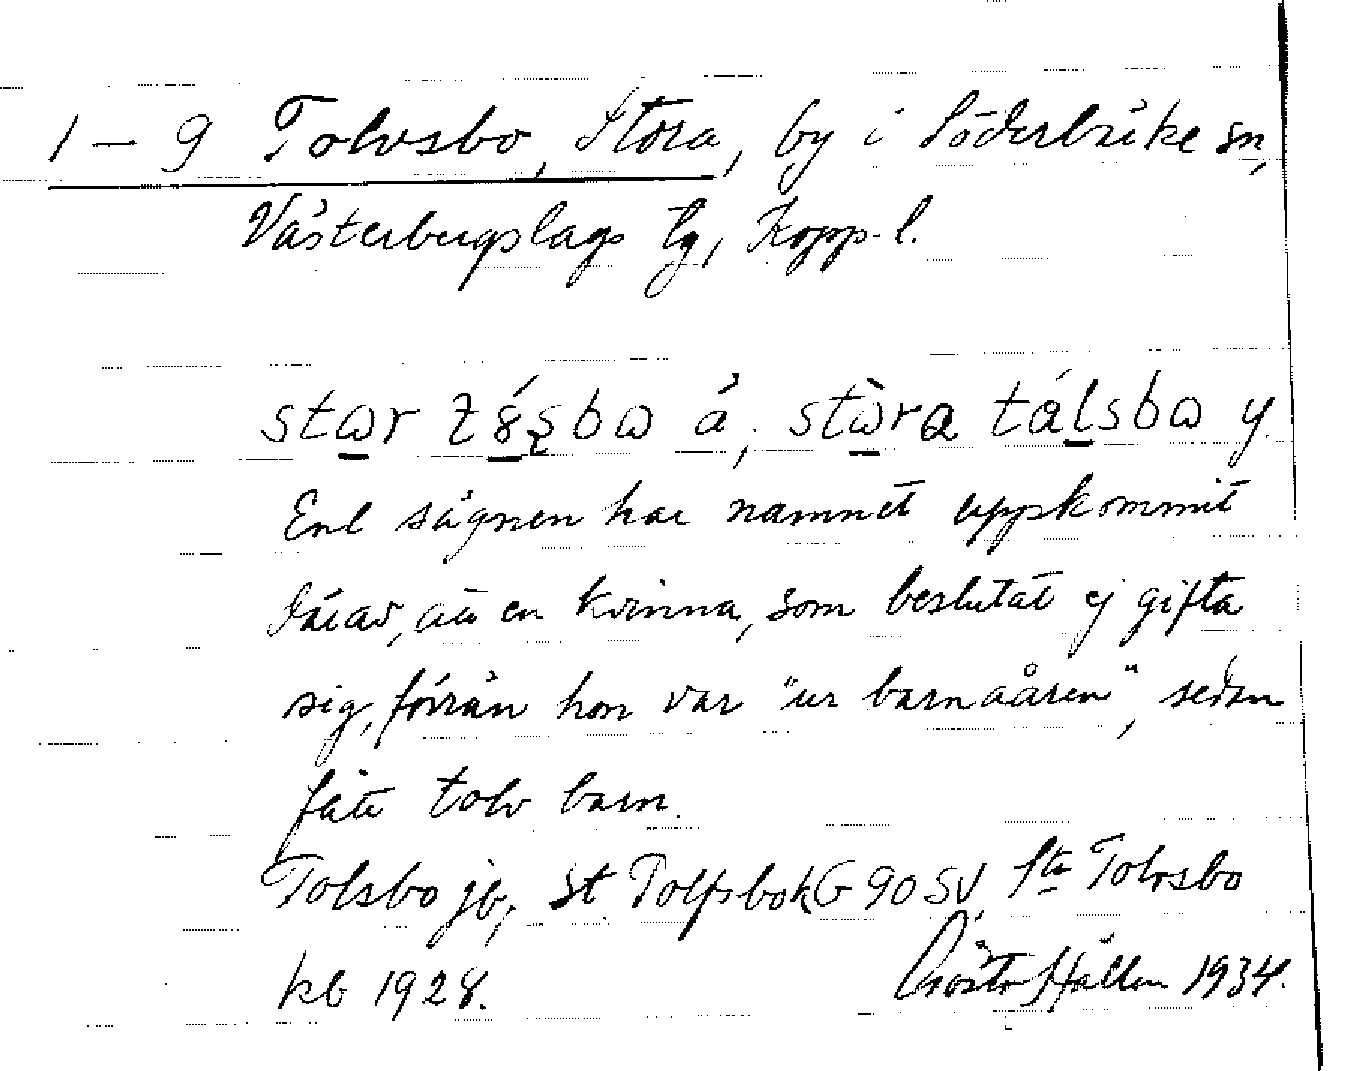 1 – 9 Tolvsbo, Stora, by i Söderbärke sn,
Västerbergslags tg, Kopp. l.
å, y
Enl sägnen har namnet uppkommit
därav, att en kvinna, som beslutat ej gifta
sig, förrän hon var "ur barnaåren", sedan
fått tolv barn.
Tolsbo jb, St Tolfsbo kG 90 SV Sta Tolvsbo
kb 1928. Gösta Hallen 1934.